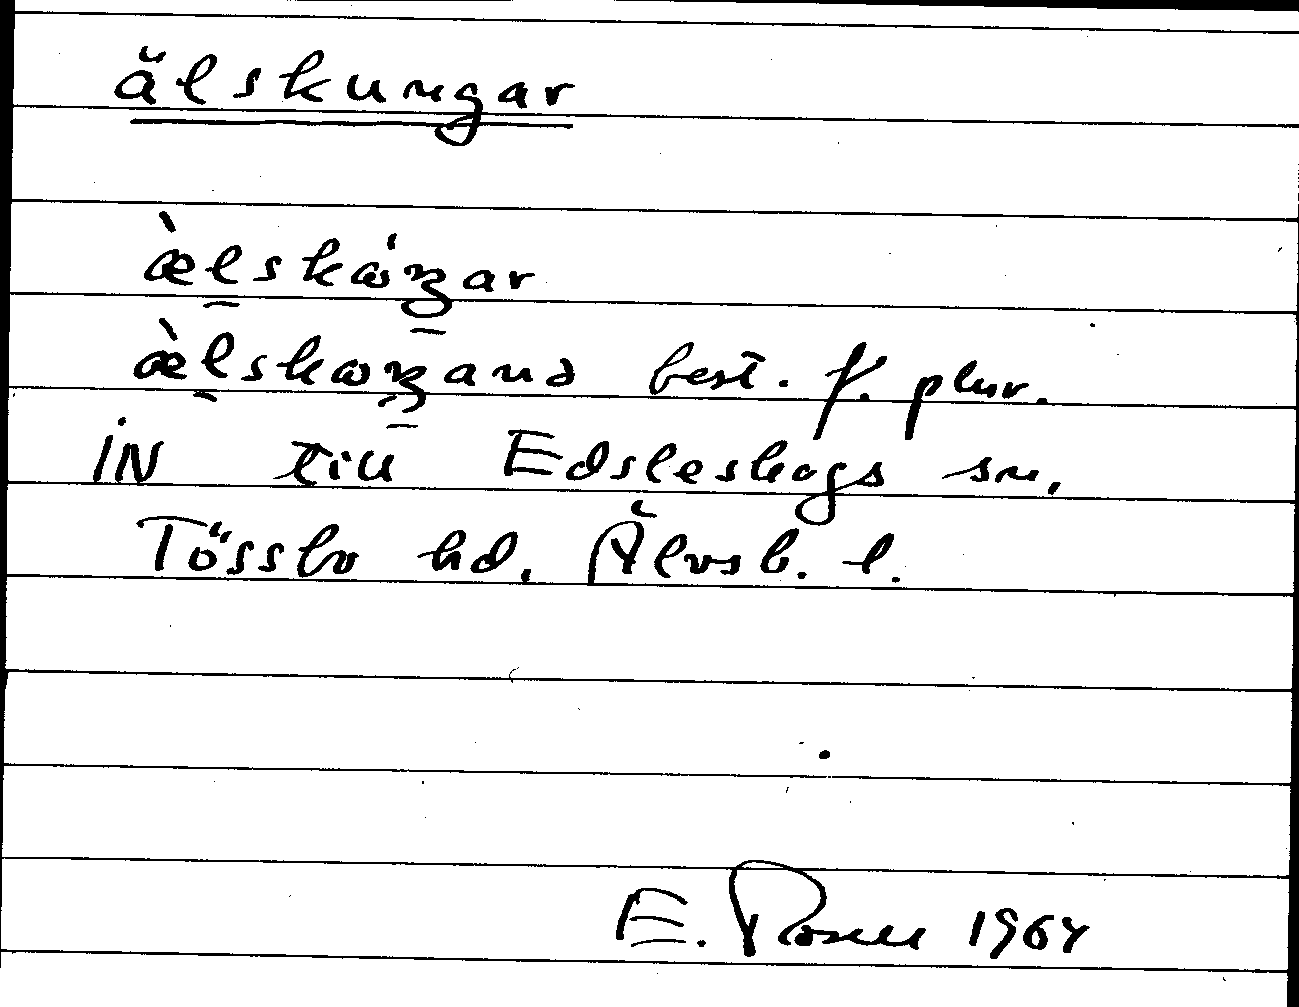 älskungar
æ̀lskɷ́ŋar
æ̀lskɷŋanə best. f. plur.
IN till Edsleskogs sn.
Tössbo hd. Älvsb. l.
E. Rosell 1964